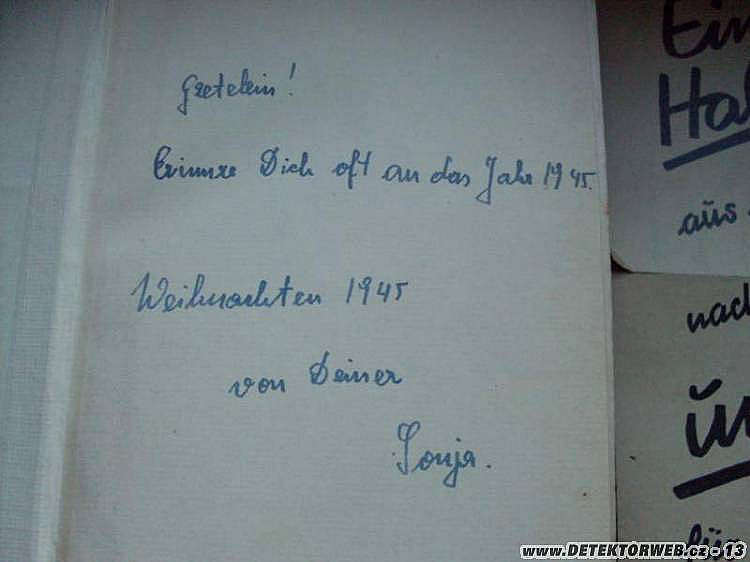 Gretelein!
Erinnre Dich oft an das Jahr 1945.
Weihnachten 1945
von Deiner
Sonja.
Ein
Hal
aus
nach
un
für
www.DETEKTORWEB.cz © 13